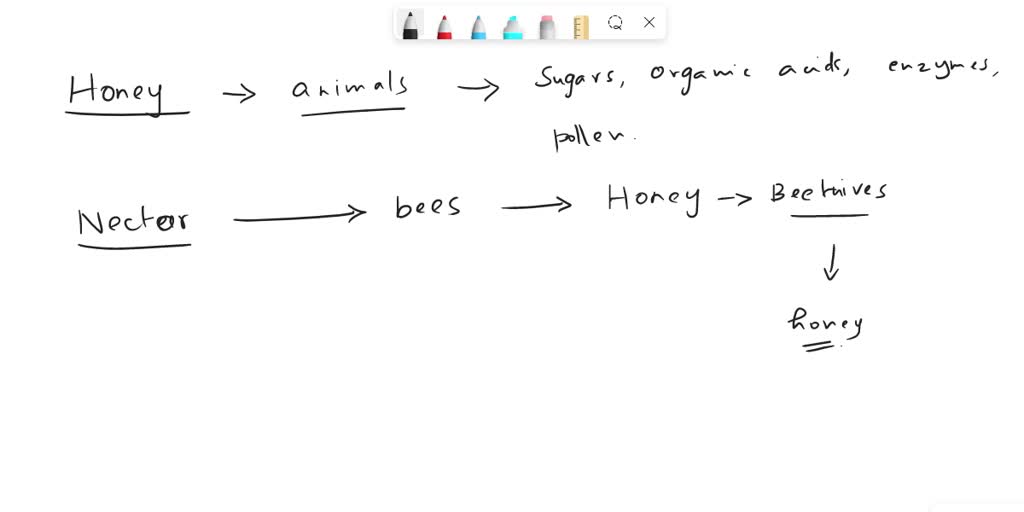 Honey → animals → Sugars, organic acids, enzymes,
pollen.
Nector → bees → Honey → Beehives
↓
honey